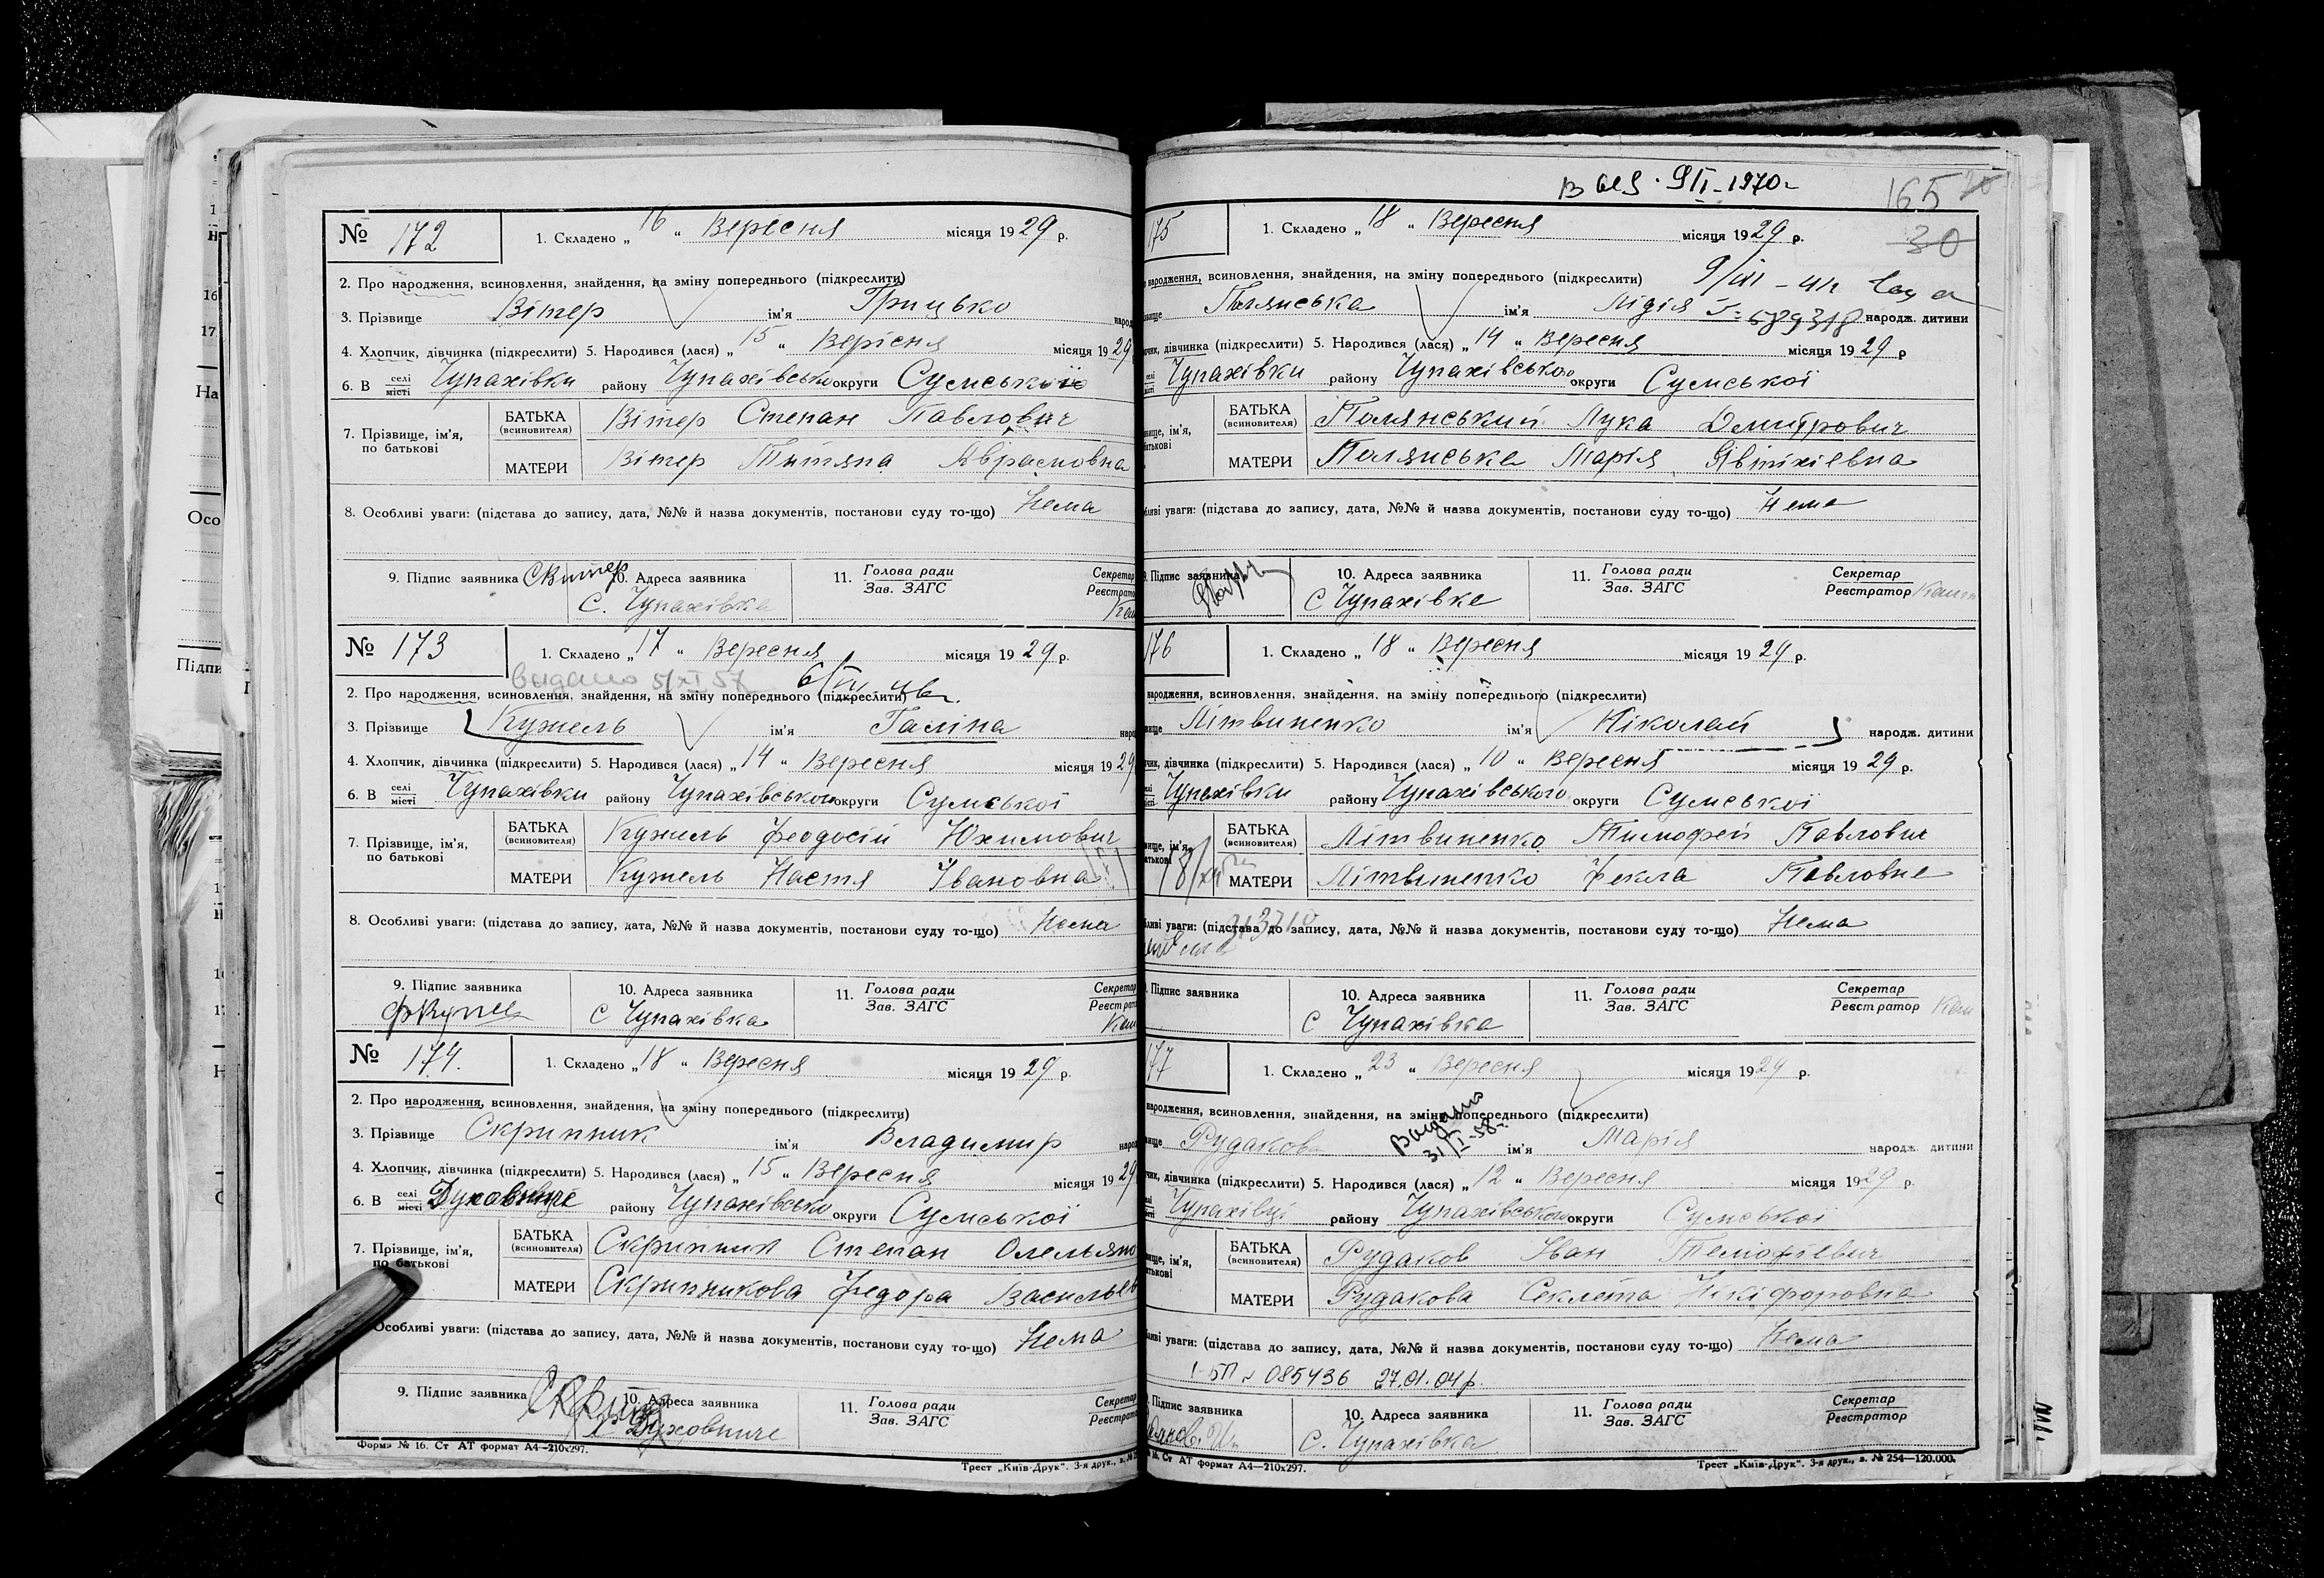 № 172
1. Складено „ 16 “ Вересня місяця 1929 р.
2. Про народження, всиновлення, знайдення, на зміну попереднього (підкреслити)
3. Прізвище Вітер ім'я Грицько народ
4. Хлопчик, дівчинка (підкреслити) 5. Народився (лася) „ 15 “ Вересня місяця 1929
6. В селі місті Чупахівки району Чупахівсько округи Сумської
7. Прізвище, ім'я, по батькові
БАТЬКА (всиновителя) Вітер Степан Павлович
МАТЕРИ Вітер Титяна
8. Особливі уваги: (підстава до запису, дата, №№ й назва документів, постанови суду то-що) Нема
9. Підпис заявника СВитер 10. Адреса заявника 11. Голова ради Зав. ЗАГС Секретар Реєстрато
С. Чупахівка
№ 173
1. Складено „ 17 “ Вересня місяця 1929 р.
видано 5/XI 57
2. Про народження, всиновлення, знайдення, на зміну попереднього (підкреслити)
3. Прізвище Кужель ім'я Галіна народ
4. Хлопчик, дівчинка (підкреслити) 5. Народився (лася) „ 14 “ Вересня місяця 1929
6. В селі місті Чупахівки району Чупахівського округи Сумської
7. Прізвище, ім'я, по батькові
БАТЬКА (всиновителя) Кужель Феодосій Юхимович
МАТЕРИ Кужель Настя Івановна
8. Особливі уваги: (підстава до запису, дата, №№ й назва документів, постанови суду то-що) Нема
9. Підпис заявника 10. Адреса заявника 11. Голова ради Зав. ЗАГС Секретар Реєстрат
С Чупахівка
№ 174.
1. Складено „ 18 “ Вересня місяця 1929 р.
2. Про народження, всиновлення, знайдення, на зміну попереднього (підкреслити)
3. Прізвище Скрипник ім'я Владимир народ
4. Хлопчик, дівчинка (підкреслити) 5. Народився (лася) „ 15 “ Вересня місяця 1929
6. В селі місті району Чупахівсько округи Сумської
7. Прізвище, ім'я, по батькові
БАТЬКА (всиновителя) Скрипник Степан Омеляно
МАТЕРИ Скрипникова Федора Васильев
Особливі уваги: (підстава до запису, дата, №№ й назва документів, постанови суду то-що) Нема
9. Підпис заявника 10. Адреса заявника 11. Голова ради Зав. ЗАГС Секретар Реєстрат
Форма № 16. Ст АТ формат А4—210х297.
Трест „Київ-Друк“. 3-я друк., з. №
9/I-1970г
165
30
175
1. Складено „ 18 “ Вересня місяця 1929 р.
народження, всиновлення, знайдення, на зміну попереднього (підкреслити)
вище Полянська ім'я Лідія 689318 народж. дитини
чик, дівчинка (підкреслити) 5. Народився (лася) „ 14 “ Вересня місяця 1929 р
Чупахівки району Чупахівського округи Сумської
вище, ім'я, батькові
БАТЬКА (всиновителя) Полянський Лука Дмитрович
МАТЕРИ Полянська Марія Явтихіевна
бливі уваги: (підстава до запису, дата, №№ й назва документів, постанови суду то-що) Нема
9. Підпис заявника 10. Адреса заявника 11. Голова ради Зав. ЗАГС Секретар Реєстратор
С Чупахівка
176
1. Складено „ 18 “ Вересня місяця 1929 р.
народження, всиновлення, знайдення, на зміну попереднього (підкреслити)
вище Літвиненко ім'я Ніколай народж. дитини
чик, дівчинка (підкреслити) 5. Народився (лася) „ 10 “ Вересня місяця 1929 р.
Чупахівки району Чупахівського округи Сумської
вище, ім'я, батькові
БАТЬКА (всиновителя) Літвиненко Тимофей Павлович
МАТЕРИ Літвиненко Фекла Павловне
бливі уваги: (підстава до запису, дата, №№ й назва документів, постанови суду то-що) Нема
Підпис заявника 10. Адреса заявника 11. Голова ради Зав. ЗАГС Секретар Реєстратор
С Чупахівка
177
1. Складено „ 23 “ Вересня місяця 1929 р.
народження, всиновлення, знайдення, на зміну попереднього (підкреслити)
Видано 31/I-58г.
вище Рудакова ім'я Марія народж. дитини
чик, дівчинка (підкреслити) 5. Народився (лася) „ 12 “ Вересня місяця 1929 р.
Чупахівці району Чупахівського округи Сумської
вище, ім'я, батькові
БАТЬКА (всиновителя) Рудаков Іван Темофіевич
МАТЕРИ Рудакова Секлета Нікіфоровна
ливі уваги: (підстава до запису, дата, №№ й назва документів, постанови суду то-що) Нема
I-БП № 085436 27.01.04р.
Підпис заявника 10. Адреса заявника 11. Голова ради Зав. ЗАГС Секретар Реєстратор
С. Чупахівка
16. Ст АТ формат А4—210х297.
Трест „Київ-Друк“. 3-я друк., з. № 254—120.000.